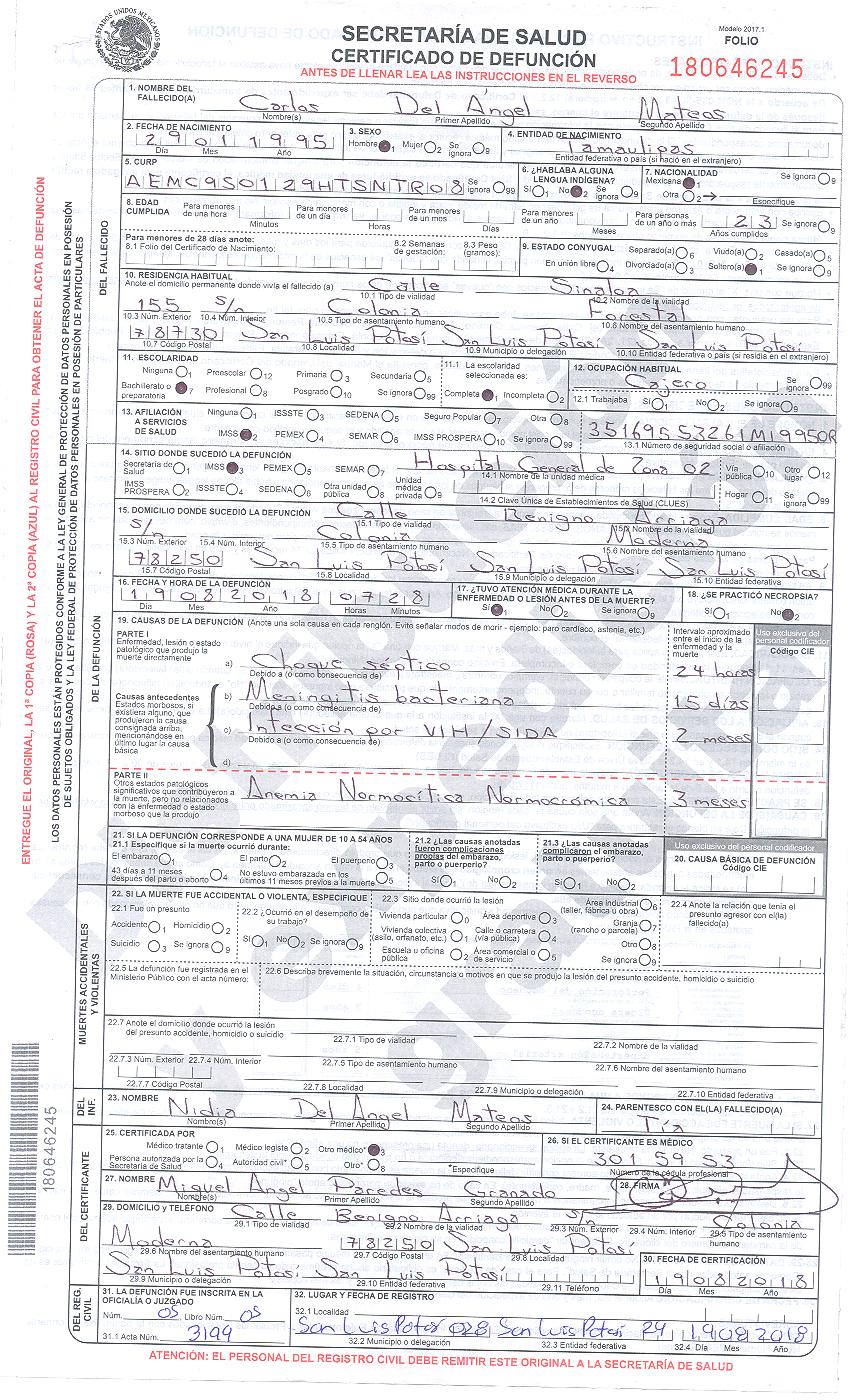 SECRETARÍA DE SALUD
CERTIFICADO DE DEFUNCIÓN
ANTES DE LLENAR LEA LAS INSTRUCCIONES EN EL REVERSO
Modelo 2017.1
FOLIO
180646245
ESTADOS UNIDOS MEXICANOS
ENTREGUE EL ORIGINAL, LA 1ª COPIA (ROSA) Y LA 2ª COPIA (AZUL) AL REGISTRO CIVIL PARA OBTENER EL ACTA DE DEFUNCIÓN
LOS DATOS PERSONALES ESTÁN PROTEGIDOS CONFORME A LA LEY GENERAL DE PROTECCIÓN DE DATOS PERSONALES EN POSESIÓN
DE SUJETOS OBLIGADOS Y LA LEY FEDERAL DE PROTECCIÓN DE DATOS PERSONALES EN POSESIÓN DE PARTICULARES
180646245
DEL FALLECIDO
1. NOMBRE DEL FALLECIDO(A) Carlos Del Ángel Mateos
Nombre(s) Primer Apellido Segundo Apellido
2. FECHA DE NACIMIENTO 29 01 1995
Día Mes Año
3. SEXO Hombre 1 Mujer 2 Se ignora 9
4. ENTIDAD DE NACIMIENTO Tamaulipas
Entidad federativa o país (si nació en el extranjero)
5. CURP AEMC950129HTSNTR08 Se ignora 99
6. ¿HABLABA ALGUNA LENGUA INDÍGENA? Sí 1 No 2 Se ignora 9
7. NACIONALIDAD Mexicana 1 Otra 2 Se ignora 9
Especifique
8. EDAD CUMPLIDA Para menores de una hora Para menores de un día Para menores de un mes Para menores de un año Para personas de un año o más 23 Se ignora 9
Minutos Horas Días Meses Años cumplidos
Para menores de 28 días anote:
8.1 Folio del Certificado de Nacimiento: 8.2 Semanas de gestación: 8.3 Peso (gramos):
9. ESTADO CONYUGAL Separado(a) 6 Viudo(a) 2 Casado(a) 5
En unión libre 4 Divorciado(a) 3 Soltero(a) 1 Se ignora 9
10. RESIDENCIA HABITUAL
Anote el domicilio permanente donde vivía el fallecido (a) Calle Sinaloa
10.1 Tipo de vialidad 10.2 Nombre de la vialidad
155 s/n Colonia Forestal
10.3 Núm. Exterior 10.4 Núm. Interior 10.5 Tipo de asentamiento humano 10.6 Nombre del asentamiento humano
78730 San Luis Potosí San Luis Potosí San Luis Potosí
10.7 Código Postal 10.8 Localidad 10.9 Municipio o delegación 10.10 Entidad federativa o país (si residía en el extranjero)
11. ESCOLARIDAD
Ninguna 1 Preescolar 12 Primaria 3 Secundaria 5
Bachillerato o preparatoria 7 Profesional 8 Posgrado 10 Se ignora 99
11.1 La escolaridad seleccionada es: Completa 1 Incompleta 2
12. OCUPACIÓN HABITUAL Cajero Se ignora 99
12.1 Trabajaba Sí 1 No 2 Se ignora 9
13. AFILIACIÓN A SERVICIOS DE SALUD
Ninguna 1 ISSSTE 3 SEDENA 5 Seguro Popular 7 Otra 8
IMSS 2 PEMEX 4 SEMAR 6 IMSS PROSPERA 10 Se ignora 99
13.1 Número de seguridad social o afiliación
DE LA DEFUNCIÓN
14. SITIO DONDE SUCEDIÓ LA DEFUNCIÓN Hospital General de Zona 02
Secretaría de Salud 1 IMSS 3 PEMEX 5 SEMAR 7 14.1 Nombre de la unidad médica Vía pública 10 Otro lugar 12
IMSS PROSPERA 2 ISSSTE 4 SEDENA 6 Otra unidad pública 8 Unidad médica privada 9 14.2 Clave Única de Establecimientos de Salud (CLUES) Hogar 11 Se ignora 99
15. DOMICILIO DONDE SUCEDIÓ LA DEFUNCIÓN Calle Benigno Arriaga
15.1 Tipo de vialidad 15.2 Nombre de la vialidad
s/n Colonia Moderna
15.3 Núm. Exterior 15.4 Núm. Interior 15.5 Tipo de asentamiento humano 15.6 Nombre del asentamiento humano
78250 San Luis Potosí San Luis Potosí San Luis Potosí
15.7 Código Postal 15.8 Localidad 15.9 Municipio o delegación 15.10 Entidad federativa
16. FECHA Y HORA DE LA DEFUNCIÓN 19 08 2018 07 28
Día Mes Año Horas Minutos
17. ¿TUVO ATENCIÓN MÉDICA DURANTE LA ENFERMEDAD O LESIÓN ANTES DE LA MUERTE? Sí 1 No 2 Se ignora 9
18. ¿SE PRACTICÓ NECROPSIA? Sí 1 No 2
19. CAUSAS DE LA DEFUNCIÓN (Anote una sola causa en cada renglón. Evite señalar modos de morir - ejemplo: paro cardíaco, astenia, etc.)
Intervalo aproximado entre el inicio de la enfermedad y la muerte
Uso exclusivo del personal codificador
Código CIE
PARTE I
Enfermedad, lesión o estado patológico que produjo la muerte directamente
a) Choque séptico 24 horas
Debido a (o como consecuencia de)
Causas antecedentes
Estados morbosos, si existiera alguno, que produjeron la causa consignada arriba, mencionándose en último lugar la causa básica
b) Meningitis bacteriana 15 días
Debido a (o como consecuencia de)
c) Infección por VIH/SIDA 2 meses
Debido a (o como consecuencia de)
d)
PARTE II
Otros estados patológicos significativos que contribuyeron a la muerte, pero no relacionados con la enfermedad o estado morboso que la produjo
Anemia Normocítica Normocrómica 3 meses
21. SI LA DEFUNCIÓN CORRESPONDE A UNA MUJER DE 10 A 54 AÑOS
21.1 Especifique si la muerte ocurrió durante:
El embarazo 1 El parto 2 El puerperio 3
43 días a 11 meses después del parto o aborto 4 No estuvo embarazada en los últimos 11 meses previos a la muerte 5
21.2 ¿Las causas anotadas fueron complicaciones propias del embarazo, parto o puerperio? Sí 1 No 2
21.3 ¿Las causas anotadas complicaron el embarazo, parto o puerperio? Sí 1 No 2
Uso exclusivo del personal codificador
20. CAUSA BÁSICA DE DEFUNCIÓN
Código CIE
MUERTES ACCIDENTALES Y VIOLENTAS
22. SI LA MUERTE FUE ACCIDENTAL O VIOLENTA, ESPECIFIQUE
22.1 Fue un presunto
Accidente 1 Homicidio 2
Suicidio 3 Se ignora 9
22.2 ¿Ocurrió en el desempeño de su trabajo?
Sí 1 No 2 Se ignora 9
22.3 Sitio donde ocurrió la lesión
Vivienda particular 0 Área deportiva 3 Área Industrial (taller, fábrica u obra) 6
Vivienda colectiva (asilo, orfanato, etc.) 1 Calle o carretera (vía pública) 4 Granja (rancho o parcela) 7
Escuela u oficina pública 2 Área comercial o de servicio 5 Otro 8
Se ignora 9
22.4 Anote la relación que tenía el presunto agresor con el(la) fallecido(a)
22.5 La defunción fue registrada en el Ministerio Público con el acta número:
22.6 Describa brevemente la situación, circunstancia o motivos en que se produjo la lesión del presunto accidente, homicidio o suicidio
22.7 Anote el domicilio donde ocurrió la lesión del presunto accidente, homicidio o suicidio
22.7.1 Tipo de vialidad 22.7.2 Nombre de la vialidad
22.7.3 Núm. Exterior 22.7.4 Núm. Interior 22.7.5 Tipo de asentamiento humano 22.7.6 Nombre del asentamiento humano
22.7.7 Código Postal 22.7.8 Localidad 22.7.9 Municipio o delegación 22.7.10 Entidad federativa
DEL INF.
23. NOMBRE Nidia Del Angel Mateos
Nombre(s) Primer Apellido Segundo Apellido
24. PARENTESCO CON EL(LA) FALLECIDO(A) Tía
DEL CERTIFICANTE
25. CERTIFICADA POR
Médico tratante 1 Médico legista 2 Otro médico* 3
Persona autorizada por la Secretaría de Salud 4 Autoridad civil* 5 Otro* 8
*Especifique
26. SI EL CERTIFICANTE ES MÉDICO
3015953
Número de la cédula profesional
27. NOMBRE Miguel Angel Paredes Granado
Nombre(s) Primer Apellido Segundo Apellido
28. FIRMA
29. DOMICILIO Y TELÉFONO Calle Benigno Arriaga s/n Colonia
29.1 Tipo de vialidad 29.2 Nombre de la vialidad 29.3 Núm. Exterior 29.4 Núm. Interior 29.5 Tipo de asentamiento humano
Moderna 78250 San Luis Potosí
29.6 Nombre del asentamiento humano 29.7 Código Postal 29.8 Localidad
San Luis Potosí San Luis Potosí
29.9 Municipio o delegación 29.10 Entidad federativa 29.11 Teléfono
30. FECHA DE CERTIFICACIÓN
19 08 2018
Día Mes Año
DEL REG. CIVIL
31. LA DEFUNCIÓN FUE INSCRITA EN LA OFICIALÍA O JUZGADO
Núm. 05 Libro Núm. 05
31.1 Acta Núm. 3199
32. LUGAR Y FECHA DE REGISTRO
32.1 Localidad
San Luis Potosí 028 San Luis Potosí 24 19 08 2018
32.2 Municipio o delegación 32.3 Entidad federativa 32.4 Día Mes Año
ATENCIÓN: EL PERSONAL DEL REGISTRO CIVIL DEBE REMITIR ESTE ORIGINAL A LA SECRETARÍA DE SALUD